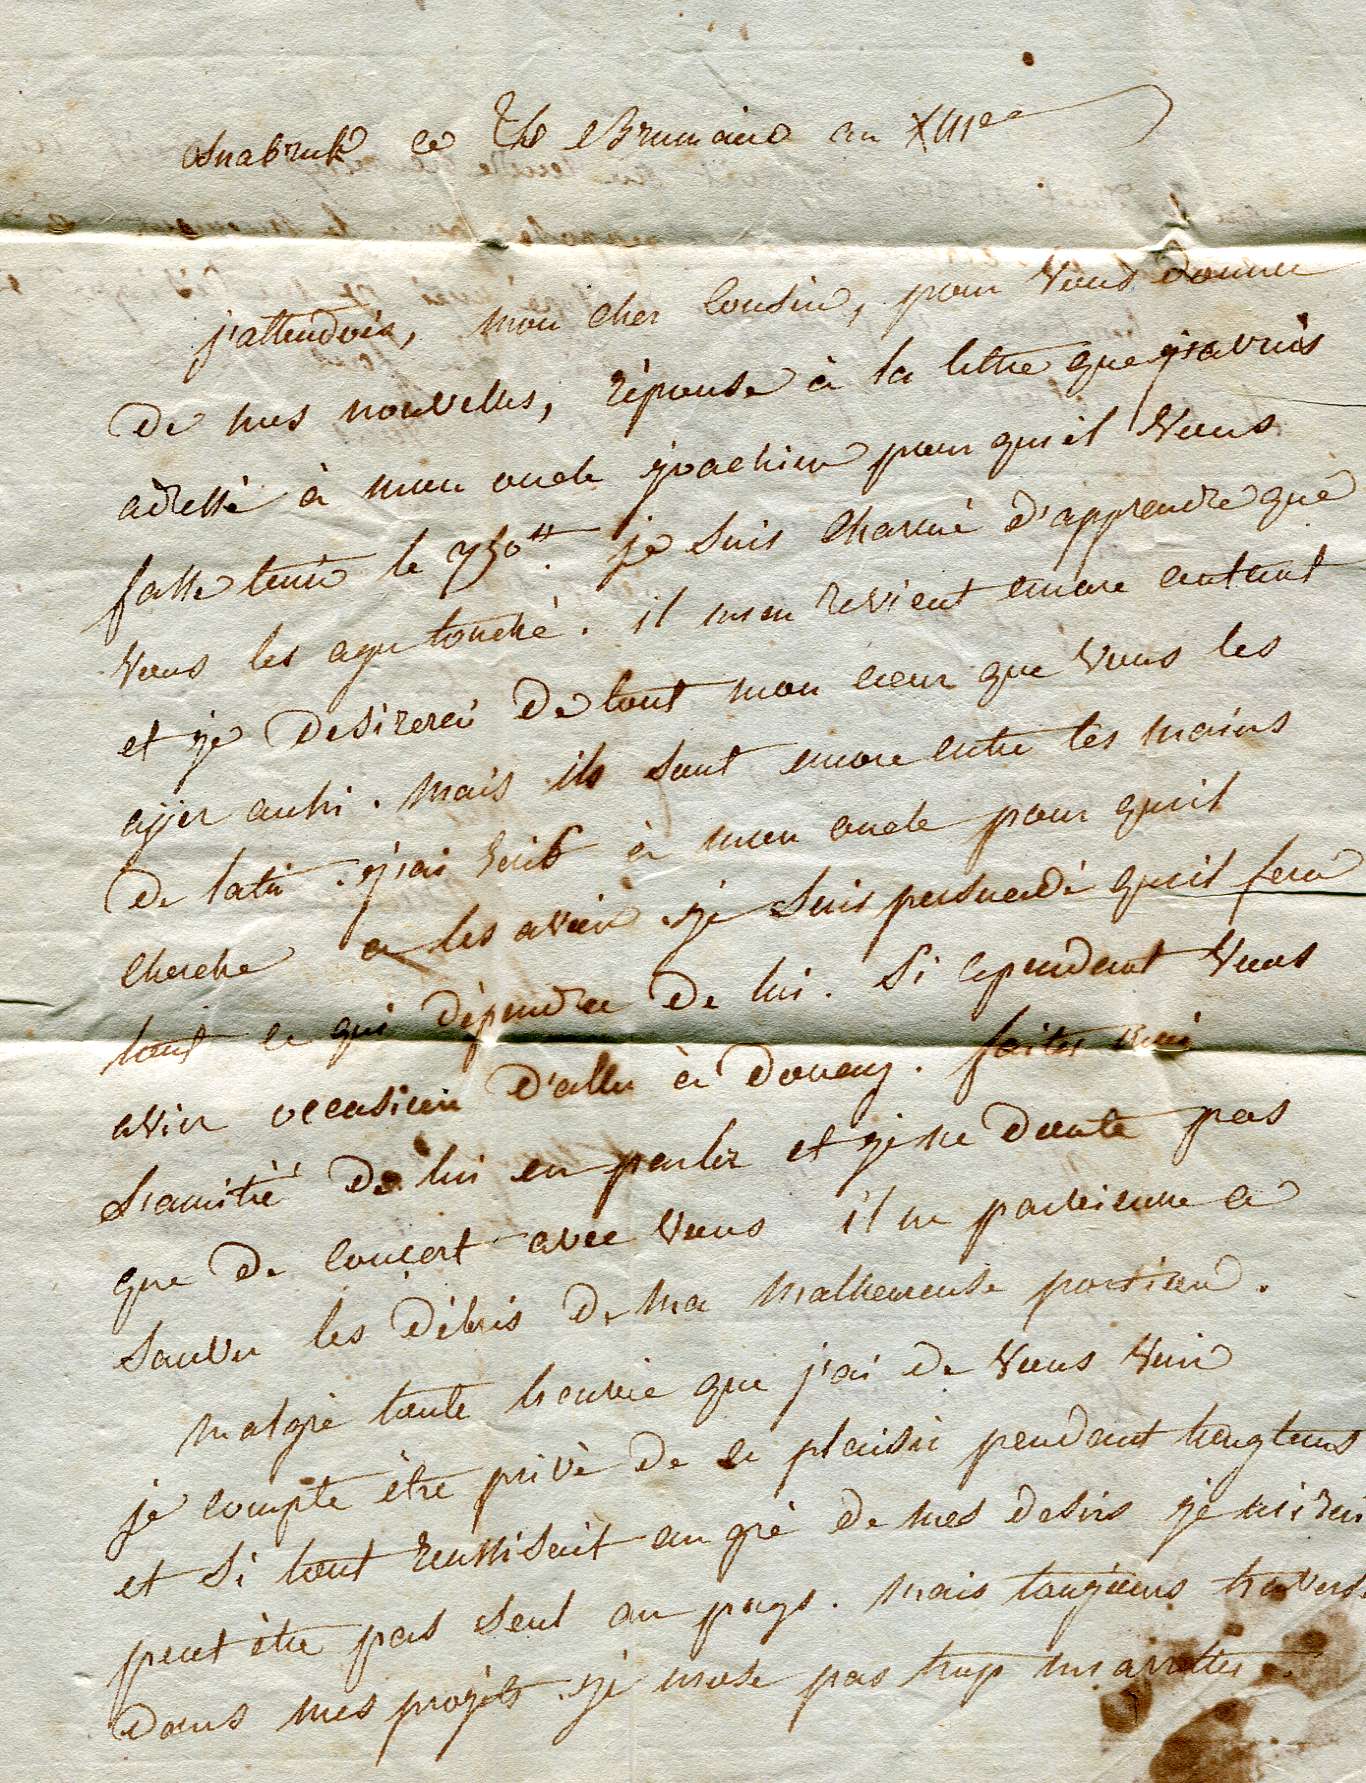 osnabruk ce Brumaire an XIIIe
j'attendois, mon cher Cousin, pour vous donner
de mes nouvelles, réponse à la lettre que j'avois
adressé à mon oncle joachim pour qu'il vous
fasse tenir le 750tt. je suis charmé d'apprendre que
vous les ayer touché. il m'en revient encore autant
et je desirerai de tout mon coeur que vous les
ayjer aussi. Mais ils sont encore entre les mains
de . j'ai écrit à mon oncle pour qu'il
cherche a les avoir. je suis persuadé qu'il fera
tout ce qui dépendra de lui. Si cependant vous
avier occasion d'aller à douay. faites moi
l'amitié de lui en parler et je ne doute pas
que de Concert avec vous il ne parvienne a
sauver les débris de ma malheureuse portion.
malgré toute l'envie que j'ai de vous voir
je compte être privé de ce plaisir pendant longtems
et si tout reussisait au gré de mes desirs je n'irai
peut être pas seul au pays. Mais toujours travers
dans mes projets. je n'ose pas trop m'arretter.